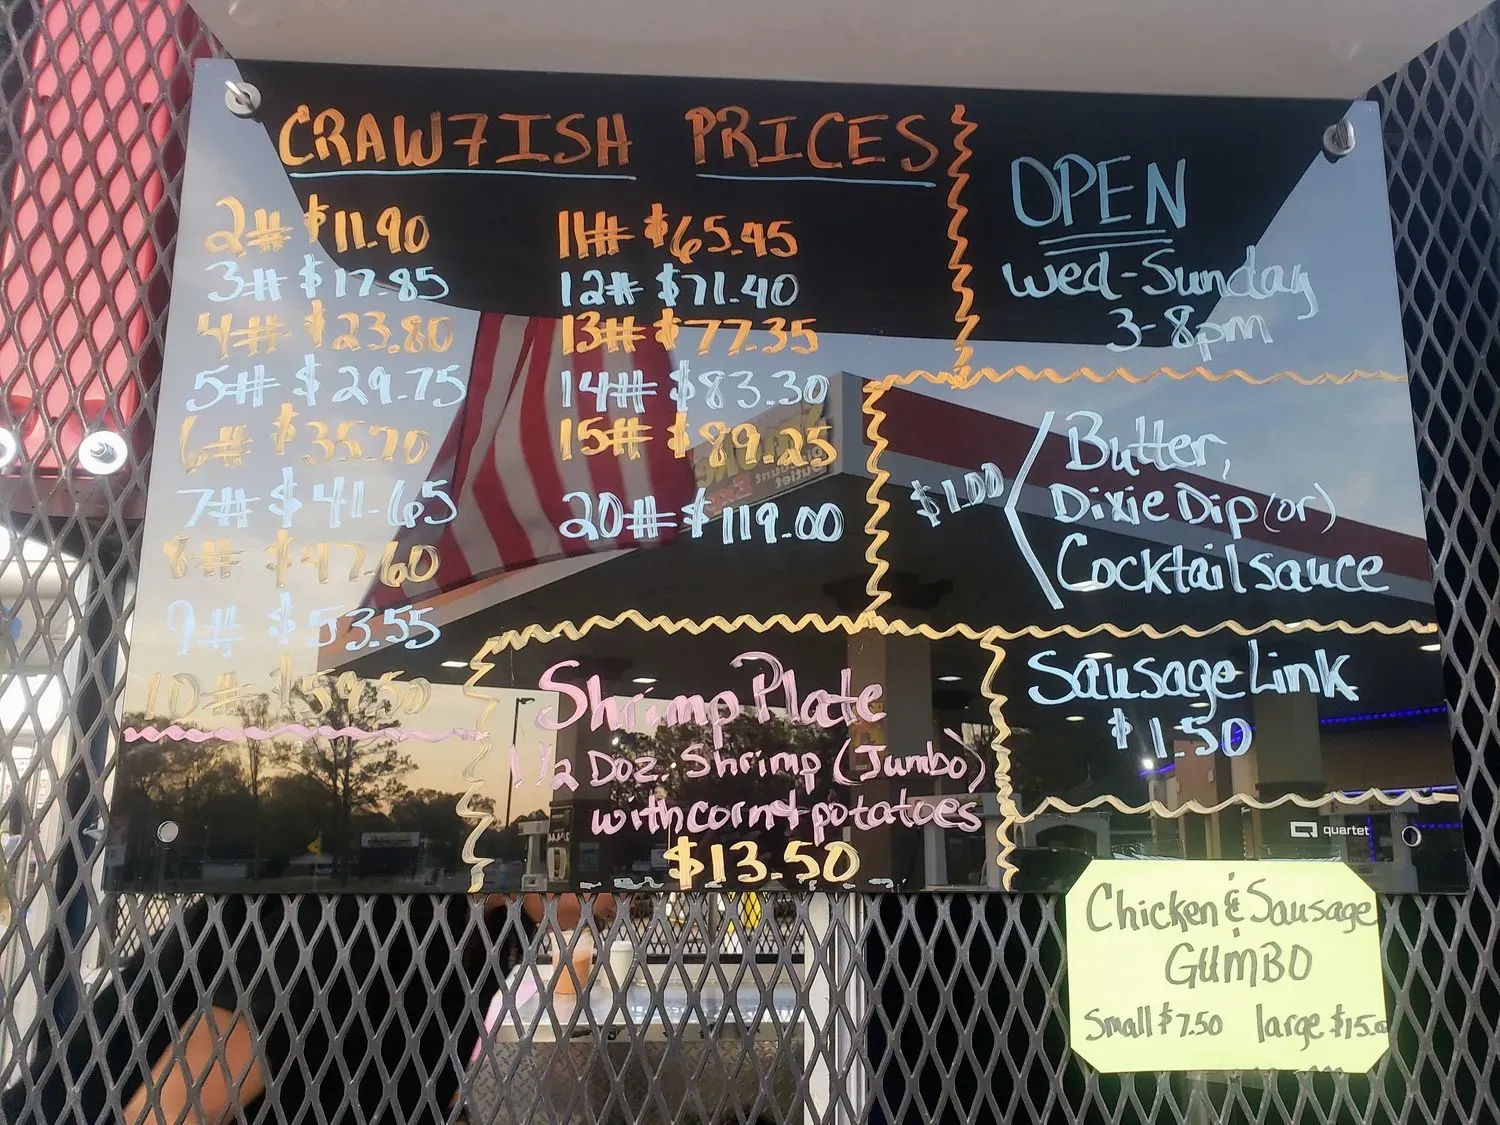 CRAWFISH PRICES
2# $11.90
3# $17.85
4# $23.80
5# $29.75
6# $35.70
7# $41.65
8# $47.60
9# $53.55
10# $59.50
11# $65.45
12# $71.40
13# $77.35
14# $83.30
15# $89.25
20# $119.00
OPEN
Wed-Sunday
3-8pm
$1.00
Butter,
Dixie Dip (or)
Cocktail sauce
Shrimp Plate
1 1/2 Doz. Shrimp (Jumbo)
with corn + potatoes
$13.50
Sausage Link
$1.50
quartet
Chicken & Sausage
GUMBO
Small $7.50 large $15.00